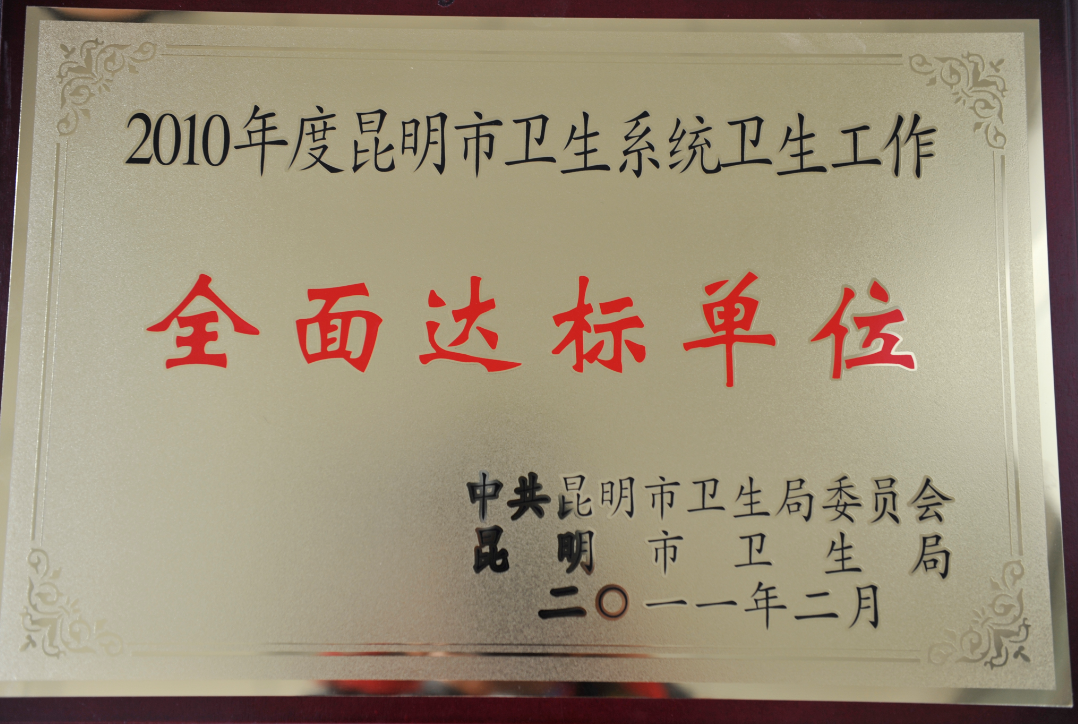 2010年度昆明市卫生系统卫生工作
全面达标单位
中共昆明市卫生局委员会
昆明市卫生局
二〇一一年二月